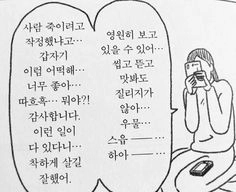 사람 죽이려고
작정했냐고…
갑자기
이럼 어떡해…
너무 좋아…
따흐흑… 뭐야?!
감사합니다.
이런 일이
다 있다니…
착하게 살길
잘했어.
영원히 보고
있을 수 있어…
씹고 뜯고
맛봐도
질리지가
않아…
우물…
스읍 ―…
하아 ―…